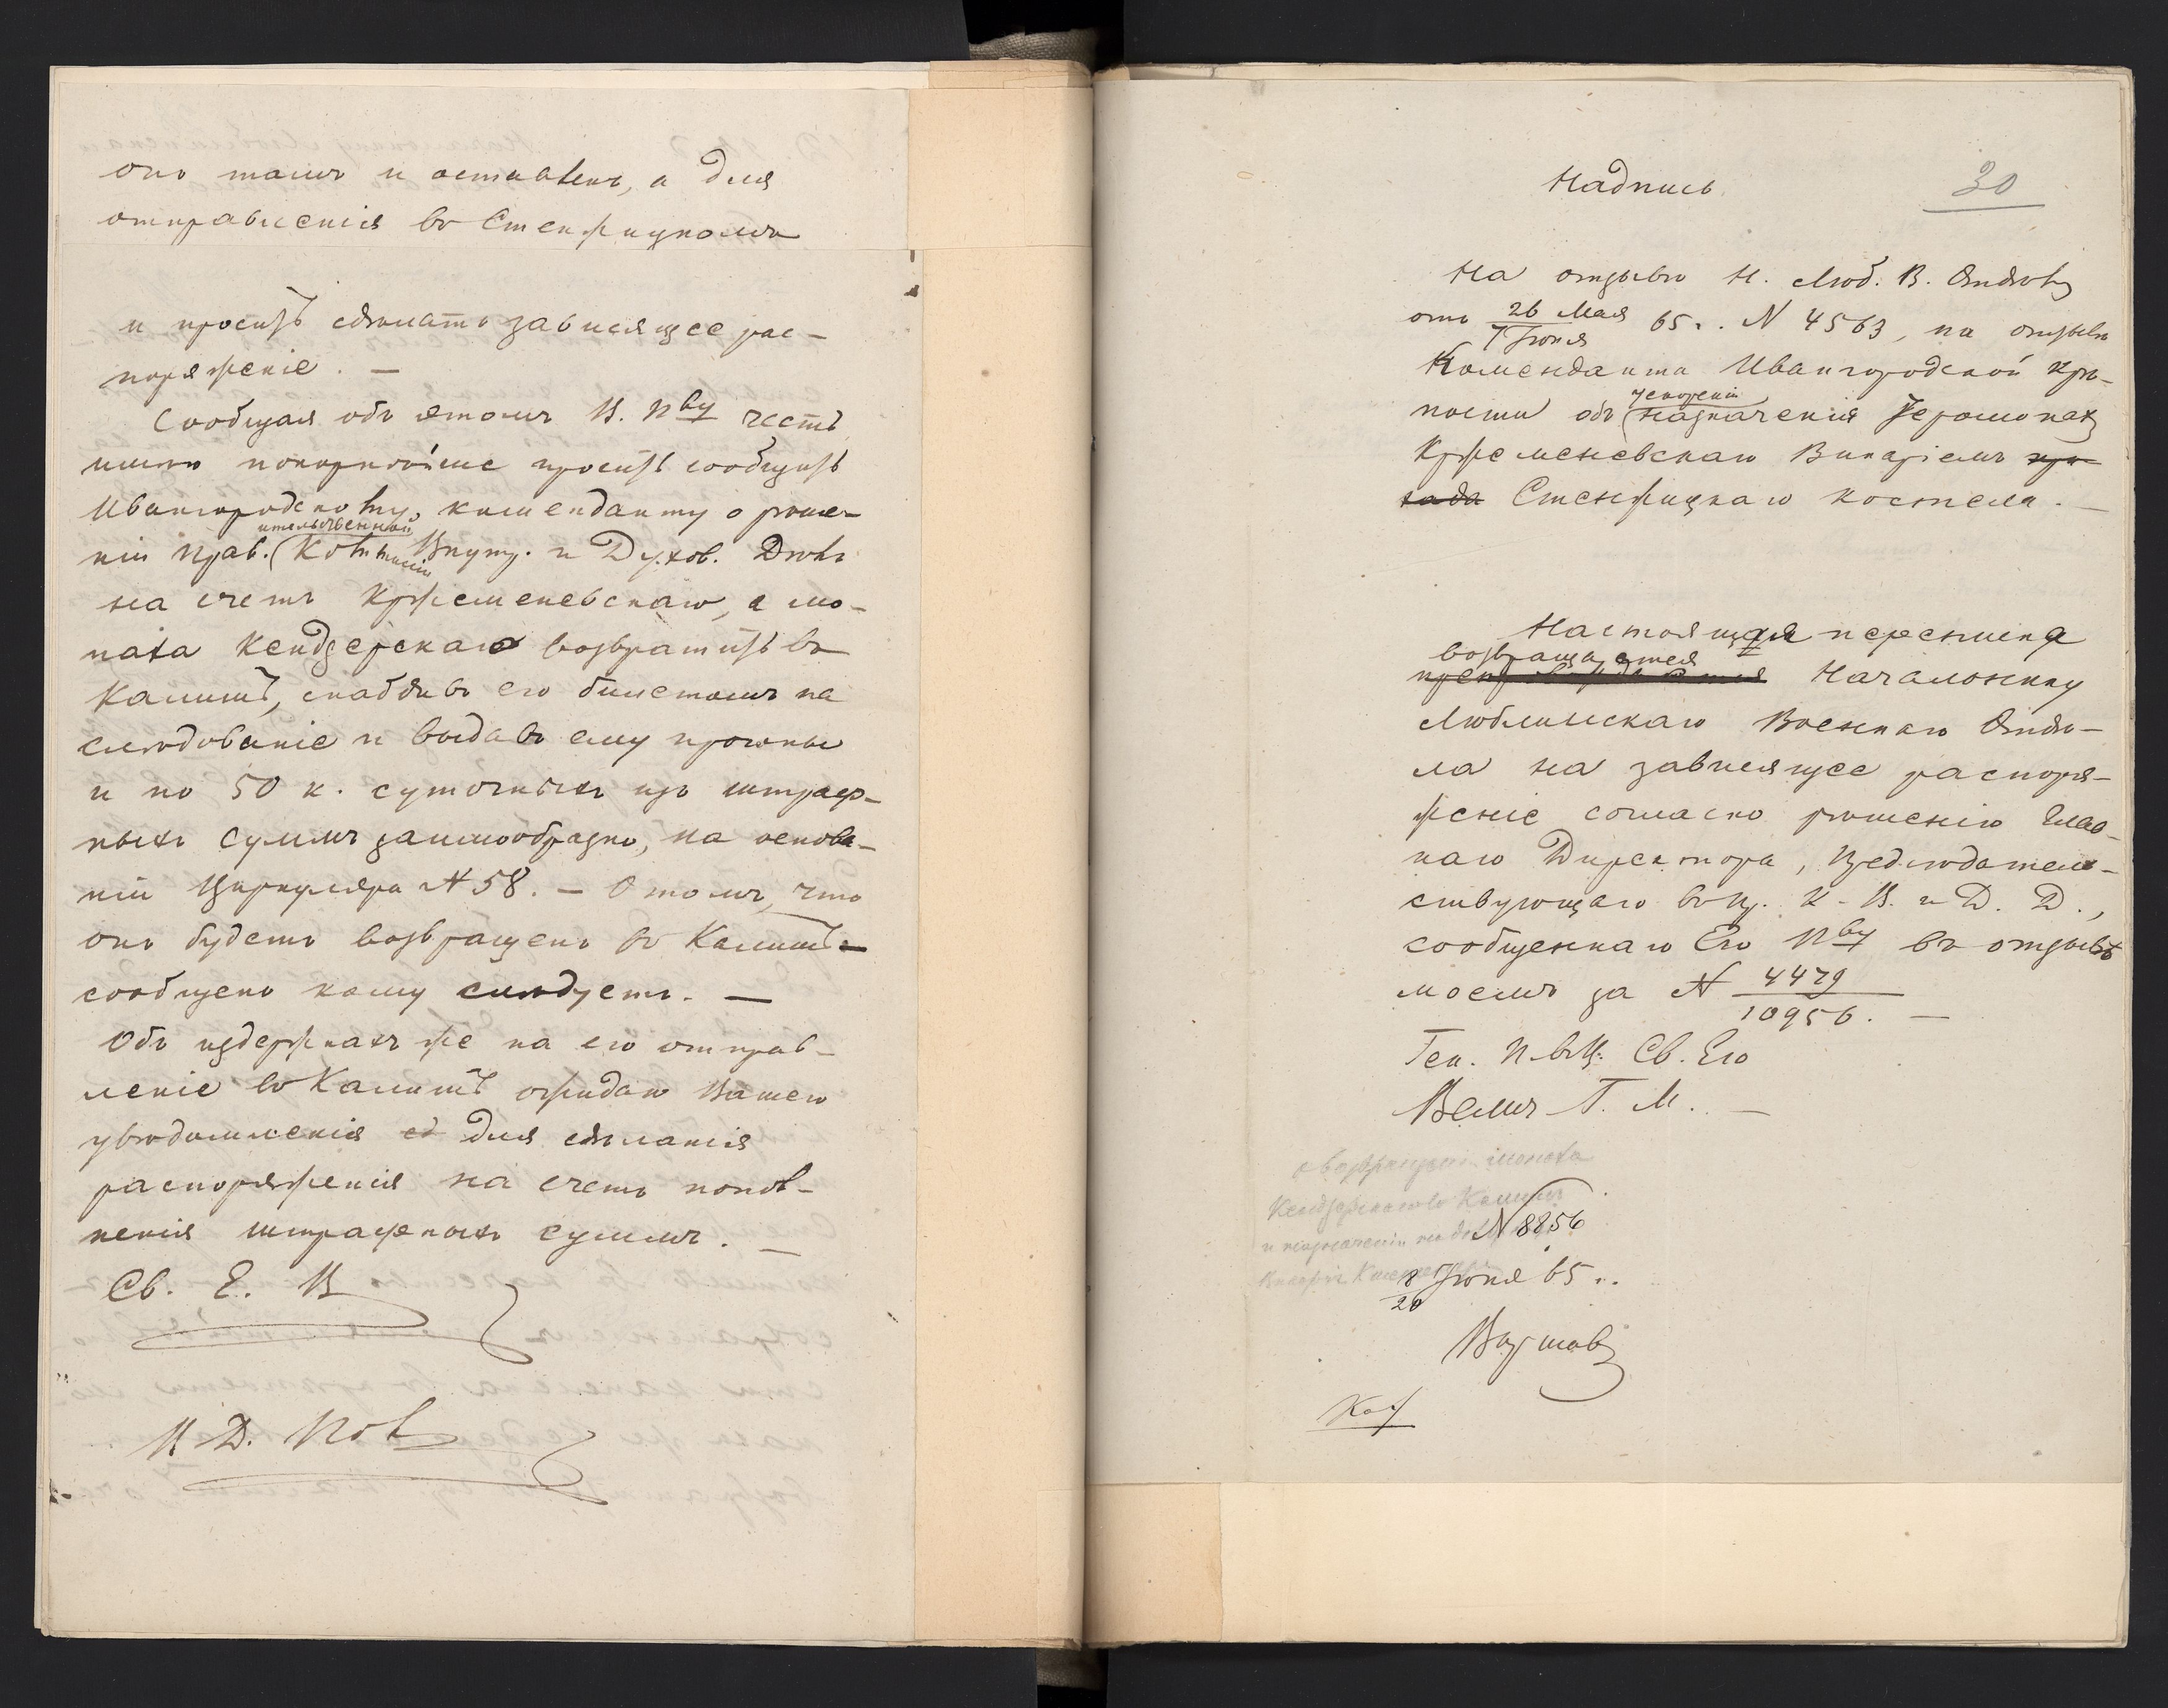 онъ тамъ и оставленъ, а для
отправленія въ Стенжицкомъ
и проситъ сдѣлать зависящее рас-
поряженіе. —
Сообщая объ этомъ В. Пву честь
имѣю покорнѣйше просить сообщить
Ивангородскому коменданту о рѣше-
ніи Прав.
ительственной
Коммисіи Внутр. и Духов. Дѣлъ
на счетъ Кржеменевскаго, а мо-
наха Кендзерскаго возвратить въ
Калишъ, снабдивъ его билетомъ на
слѣдованіе и выдавъ ему прогоны
и по 50 к. суточныхъ изъ штраф-
ныхъ суммъ заимообразно, на основа-
ніи Циркуляра № 58. — О томъ, что
онъ будетъ возвращенъ въ Калишъ
сообщено кому слѣдуетъ. —
Объ издержкахъ же на его отправ-
леніе въ Калишъ ожидаю Вашего
увѣдомленія для сдѣланія
распоряженія на счетъ попол-
ненія штрафныхъ суммъ. —
Св. Е. В
И. Д. Пол
Надпись
30
На отзывъ Н. Люб. В. Отдѣла
отъ 26 Мая / 7 Іюня 65 г. № 4563, на отзывъ
Коменданта Ивангородской крѣ-
ускореніи
пости объ назначенія Іеромонаха
Кржеменевскаго Викаріемъ при
Стенжицкаго костела. —
Настоящая переписка
возвращается
препровождается Начальнику
Люблинскаго Военнаго Отдѣ-
ла на зависящее распоря-
женіе согласно рѣшенію Глав-
наго Директора, Предсѣдатель-
ствующаго въ Пр. К. В. и Д. Д.,
сообщеннаго Его Пву въ отзывѣ
моемъ за № 4479 / 10956. —
Ген. П-Пц. Св. Его
Велич Г. М. —
о возвращеніи монаха
Кендзерскаго въ Калишъ
и назначеніи на
№ 8856
Викарія
8 / 20 Іюня 65 г.
Варшава